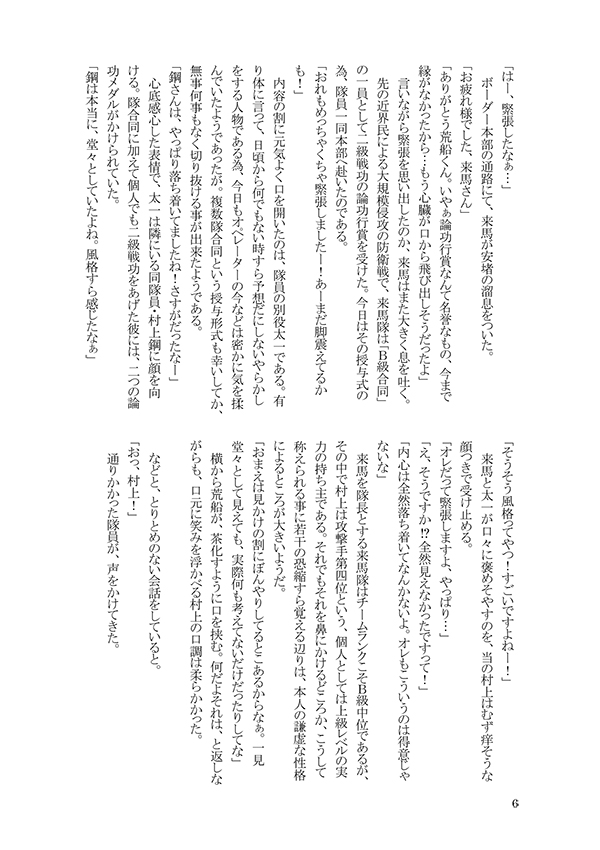 「はー、緊張したなぁ…」
　ボーダー本部の通路にて、来馬が安堵の溜息をついた。
「お疲れ様でした、来馬さん」
「ありがとう荒船くん。いやぁ論功行賞なんて名誉なもの、今まで
縁がなかったから…もう心臓が口から飛び出しそうだったよ」
　言いながら緊張を思い出したのか、来馬はまた大きく息を吐く。
　先の近界民による大規模侵攻の防衛戦で、来馬隊は「Ｂ級合同」
の一員として二級戦功の論功行賞を受けた。今日はその授与式の
為、隊員一同本部へ赴いたのである。
「おれもめっちゃくちゃ緊張しましたー！あーまだ脚震えてるか
も！」
　内容の割に元気よく口を開いたのは、隊員の別役太一である。有
り体に言って、日頃から何でもない時すら予想だにしないやらかし
をする人物である為、今日もオペレーターの今などは密かに気を揉
んでいたようであったが。複数隊合同という授与形式も幸いしてか、
無事何事もなく切り抜ける事が出来たようである。
「鋼さんは、やっぱり落ち着いてましたね！さすがだったなー」
　心底感心した表情で、太一は隣にいる同隊員・村上鋼に顔を向
ける。隊合同に加えて個人でも二級戦功をあげた彼には、二つの論
功メダルがかけられていた。
「鋼は本当に、堂々としていたよね。風格すら感じたなぁ」
「そうそう風格ってやつ！すごいですよねー！」
　来馬と太一が口々に褒めそやすのを、当の村上はむず痒そうな
顔つきで受け止める。
「オレだって緊張しますよ、やっぱり…」
「え、そうですか!?全然見えなかったですって！」
「内心は全然落ち着いてなんかないよ。オレもこういうのは得意じゃ
ないな」
　来馬を隊長とする来馬隊はチームランクこそＢ級中位であるが、
その中で村上は攻撃手第四位という、個人としては上級レベルの実
力の持ち主である。それでもそれを鼻にかけるどころか、こうして
称えられる事に若干の恐縮すら覚える辺りは、本人の謙虚な性格
によるところが大きいようだ。
「おまえは見かけの割にぼんやりしてるとこあるからなぁ。一見
堂々として見えても、実際何も考えてないだけだったりしてな」
　横から荒船が、茶化すように口を挟む。何だよそれは、と返しな
がらも、口元に笑みを浮かべる村上の口調は柔らかかった。
　などと、とりとめのない会話をしていると。
「おっ、村上！」
　通りかかった隊員が、声をかけてきた。
6